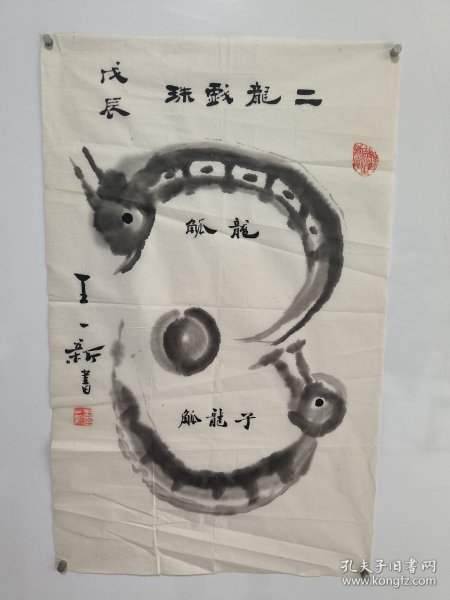 二龍戲珠
戊辰
龍觚
子龍觚
王一新書
孔夫子旧书网
www.kongfz.com